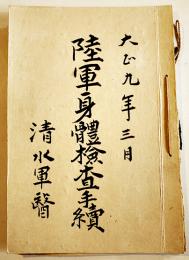 大正九年三月
陸軍身體檢查手續
清水軍醫